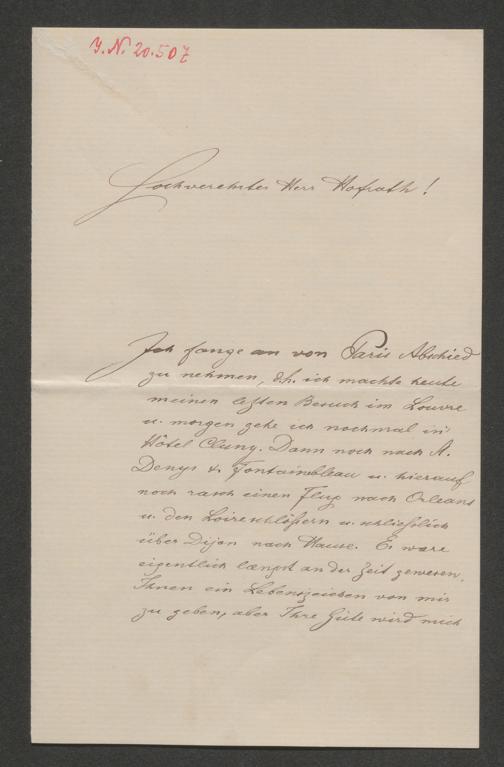 J. N. 20.507
Hochverehrter Herr Hofrath!
Ich fange an von Paris Abschied
zu nehmen, d.h. ich machte heute
meinen lezten Besuch im Louvre
u. morgen gehe ich nochmal in's
Hôtel Cluny. Dann noch nach St.
Denys & Fontainebleau u. hierauf
noch rasch einen Flug nach Orleans
u. den Loireschlößern u. schließlich
über Dijon nach Hause. Es wäre
eigentlich længst an der Zeit gewesen,
Ihnen ein Lebenszeichen von mir
zu geben, aber Ihre Güte wird mich